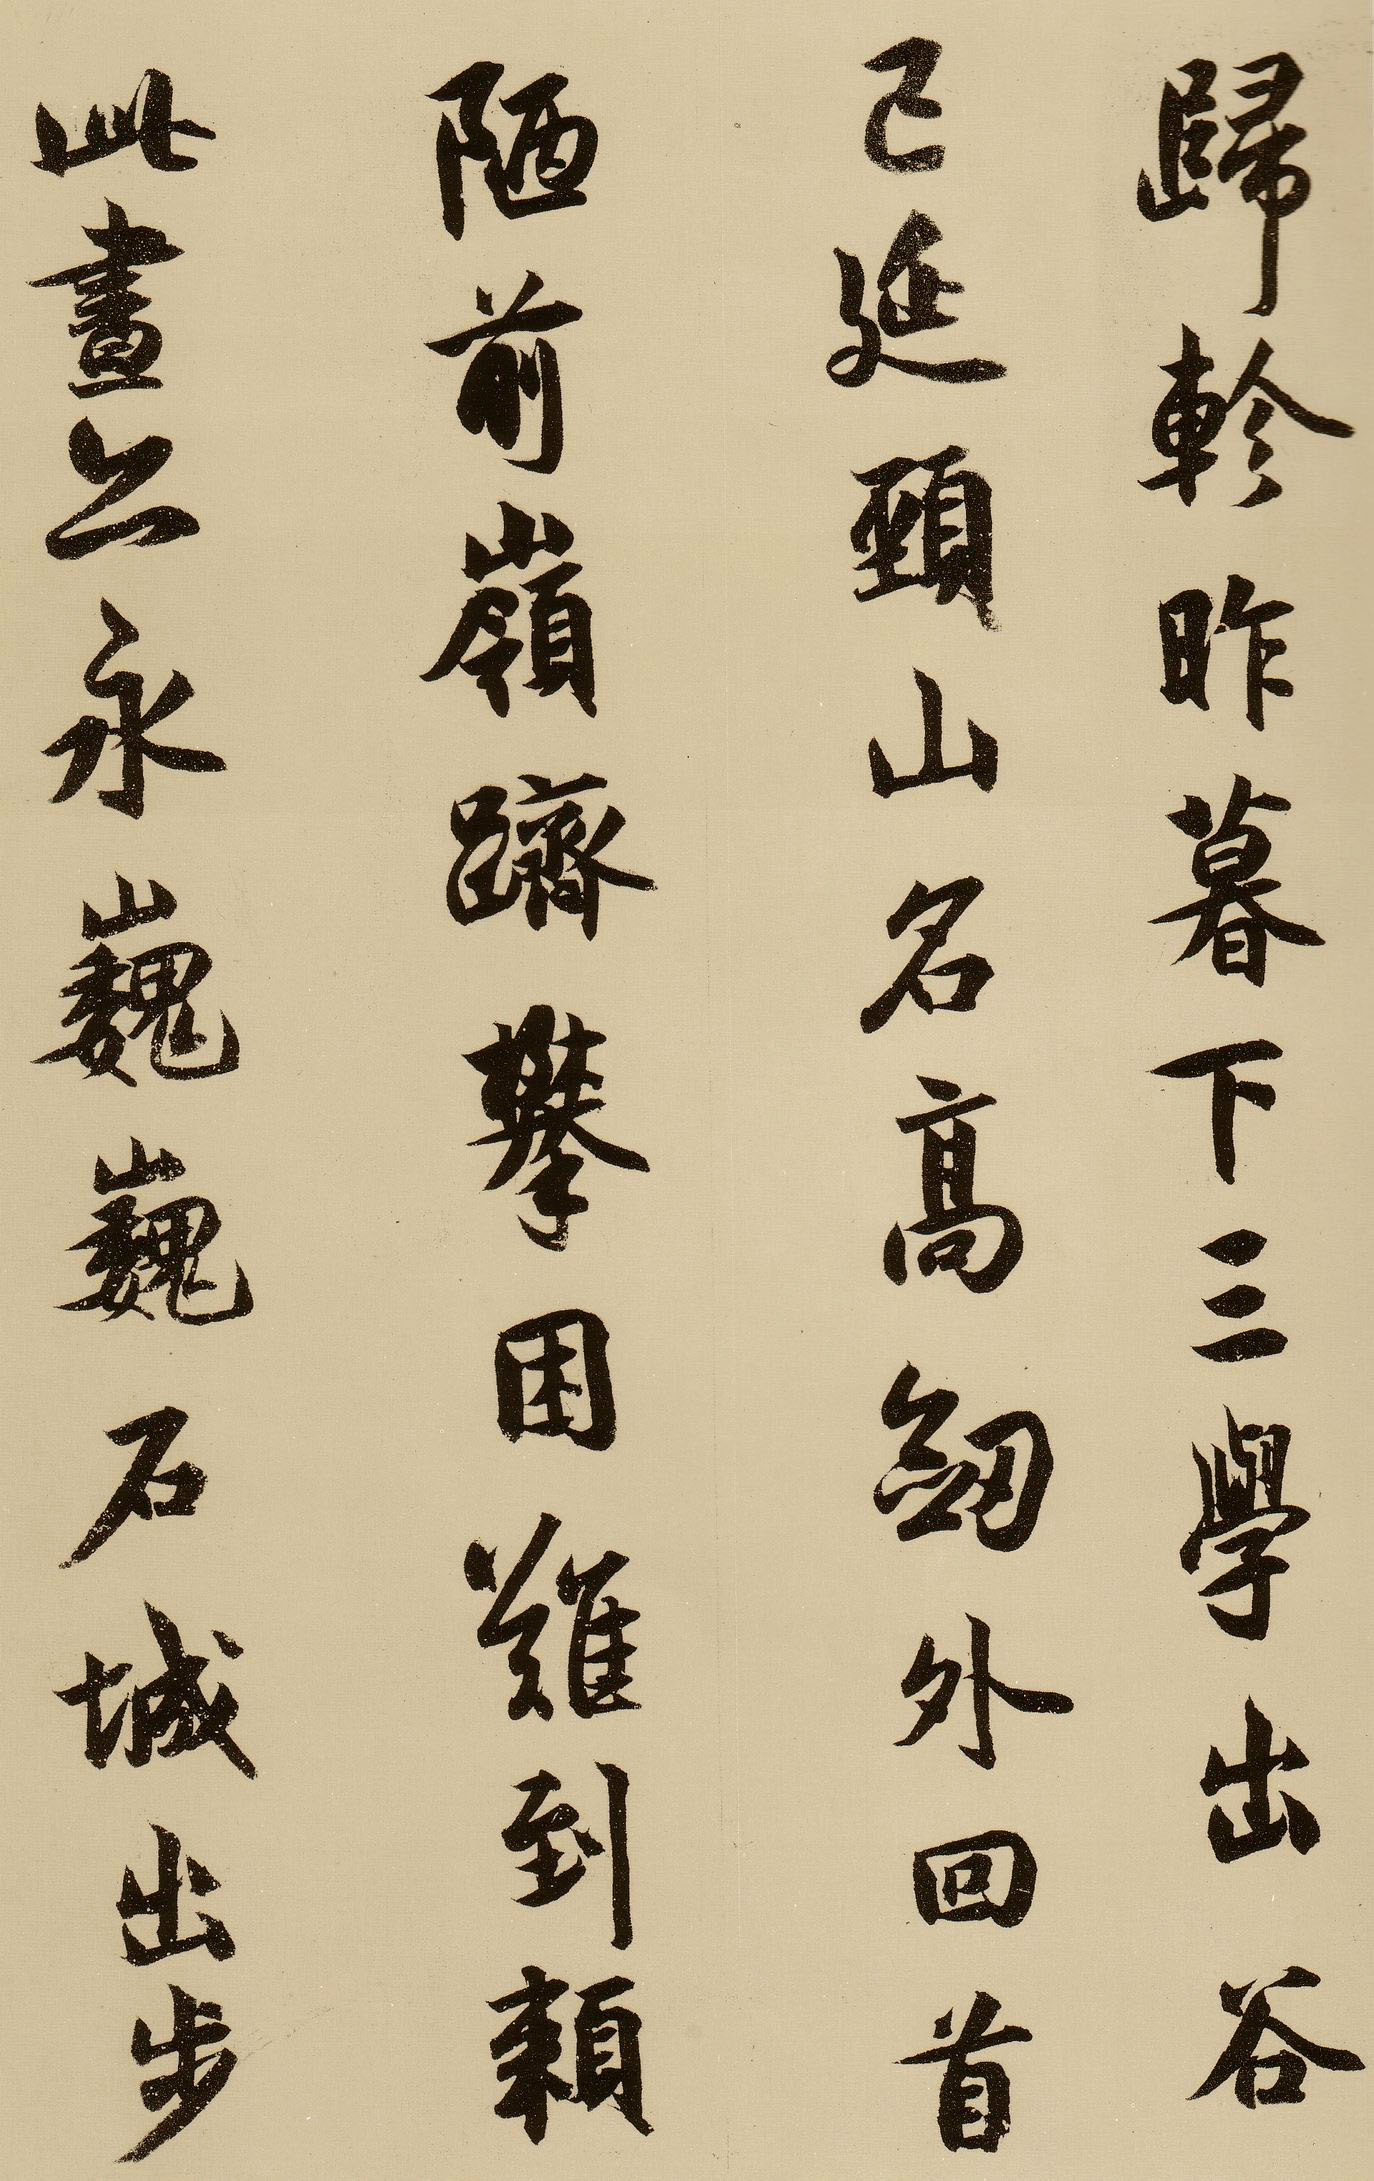 歸軫昨暮下三學出谷
已延頸山名高劒外回首
陋前嶺躋攀困難到賴
此晝之永巍巍石城出步